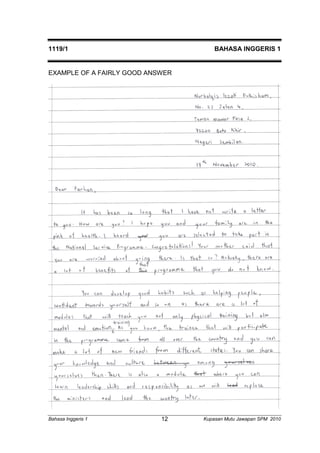 1119/1 BAHASA INGGERIS 1
EXAMPLE OF A FAIRLY GOOD ANSWER
No. 23 Jalan 4,
Taman Mawar Fasa 2,
Negeri Sembilan
15th November 2010.
Dear Farhan,
It has been so long that I have not write a letter
to you. How are you? I hope you and your family are in the
pink of health. I heard you are selected to take part in
the National Service Programme. Congratulations! Your mother said that
you are worried about going there. Is that so? Actually, there are
a lot of benefits of that programme that you do not know.
You can develop good habits such as helping people,
confident towards yourself and so on as there are a lot of
modules that will teach you not only physical training but also
mental and emotionally training. As you know, the trainee that will participate
in the programme came from all over the country and you can
make a lot of new friends from different states. You can share
your knowledge and culture between among yourselves
yourselves then. There is also a module that where you can
learn leadership skills and responsibility as we will lead replace
the ministers and lead the country later.
Bahasa Inggeris 1 12 Kupasan Mutu Jawapan SPM 2010